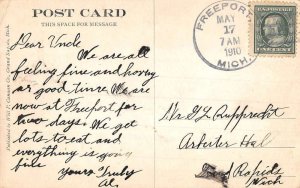 POST CARD
THIS SPACE FOR MESSAGE
FREEPORT
MAY
17
7 AM
1910
MICH.
Dear Uncle
We are all
feeling fine and having
a good time. We are
now at Freeport for
two days. We get
lots to eat and
everything is going
fine
Yours Truly
Al.
Mr G L Rupprecht
Arbeiter Hal
Grand Rapids
Mich